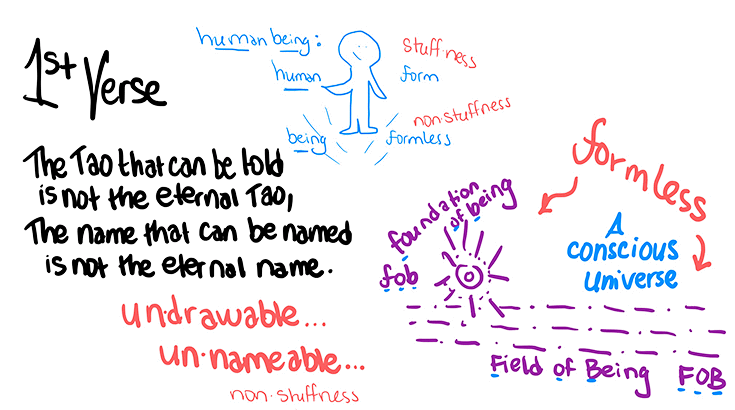 1st Verse
The Tao that can be told
is not the eternal Tao,
The name that can be named
is not the eternal name.
un·drawable...
un·nameable...
non·stuffness
human being:
stuff·ness
human
form
non·stuffness
being
formless
formless
foundation
of being
fob
A
conscious
universe
Field of Being FOB